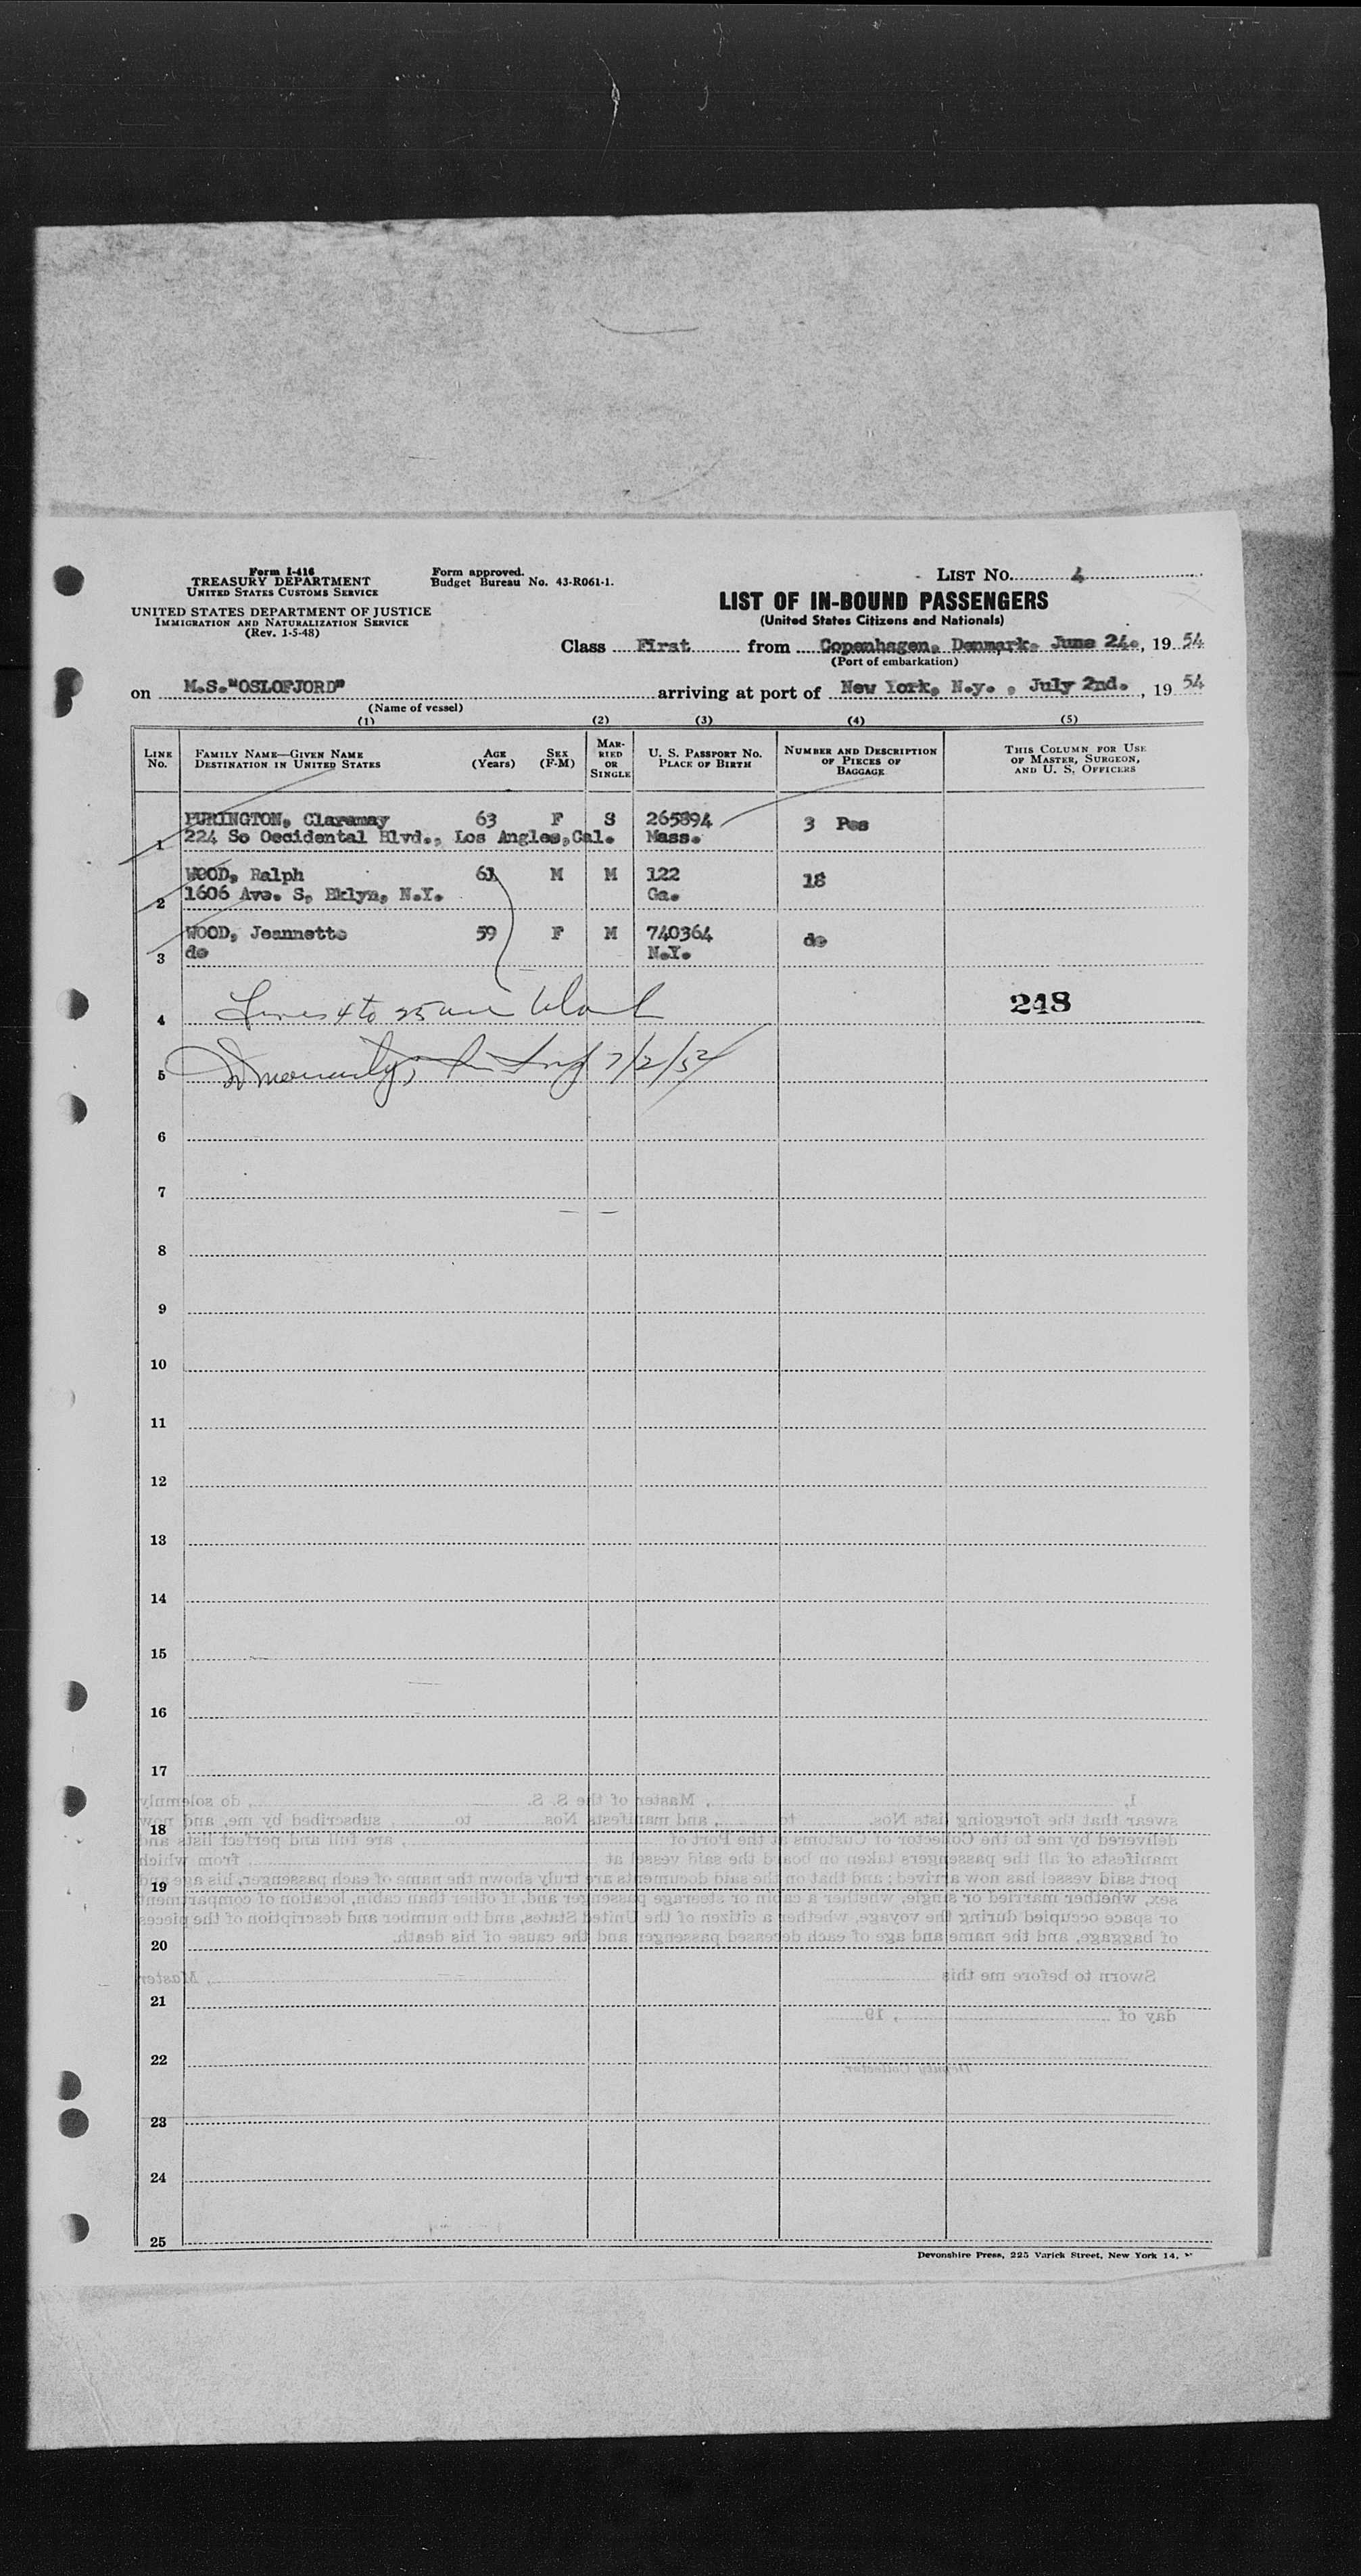 Form I-416
TREASURY DEPARTMENT
UNITED STATES CUSTOMS SERVICE
UNITED STATES DEPARTMENT OF JUSTICE
IMMIGRATION AND NATURALIZATION SERVICE
(Rev. 1-5-48)
Form approved.
Budget Bureau No. 43-R061-1.
LIST No. 4
LIST OF IN-BOUND PASSENGERS
(United States Citizens and Nationals)
Class First from Copenhagen, Denmark, June 24, 1954
(Port of embarkation)
on M.S."OSLOFJORD" arriving at port of New York, N.y. , July 2nd. , 1954
(Name of vessel)
(1) (2) (3) (4) (5)
LINE No. FAMILY NAME—GIVEN NAME DESTINATION IN UNITED STATES AGE (Years) SEX (F-M) MARRIED OR SINGLE U. S. PASSPORT No. PLACE OF BIRTH NUMBER AND DESCRIPTION OF PIECES OF BAGGAGE THIS COLUMN FOR USE OF MASTER, SURGEON, AND U. S. OFFICERS
PURINGTON, Claramay 63 F S 265894 3 Pcs
1 224 So Occidental Blvd., Los Angles,Cal. Mass.
WOOD, Ralph 61 M M 122 18
2 1606 Ave. S, Bklyn, N.Y. Ga.
WOOD, Jeannette 59 F M 740364 do
3 do N.Y.
4 Lines 4 to 25 are blank 248
5 7/2/54
6
7
8
9
10
11
12
13
14
15
16
17
I, , Master of the S. S. , do solemnly
swear that the foregoing lists Nos. to , and manifests Nos. to , subscribed by me, and now
18
delivered by me to the Collector of Customs at the Port of , are full and perfect lists and
manifests of all the passengers taken on board the said vessel at from which
port said vessel has now arrived; and that on the said documents are truly shown the name of each passenger, his age and
19
sex, whether married or single, whether a cabin or steerage passenger and, if other than cabin, location of compartment
or space occupied during the voyage, whether a citizen of the United States, and the number and description of the pieces
of baggage, and the name and age of each deceased passenger and the cause of his death.
20
Sworn to before me this , Master
21
day of , 19
22
Deputy Collector.
23
24
25
Devonshire Press, 225 Varick Street, New York 14,